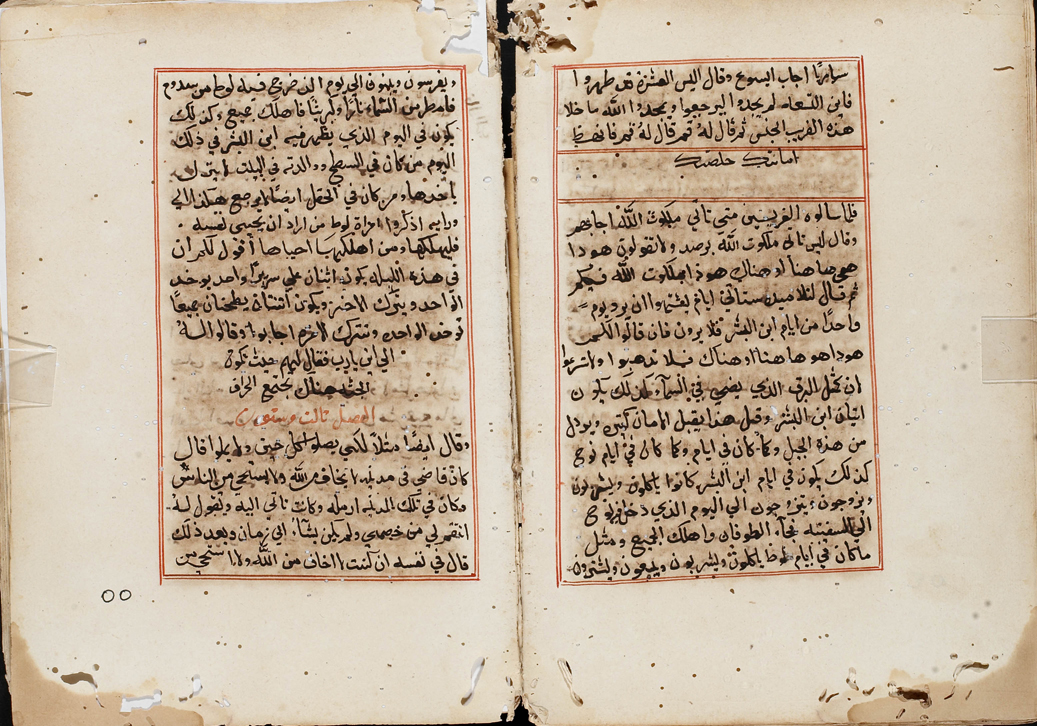 سامريًا اجاب ايسوع وقال اليس العشرة قد طهروا
فاين التسعه لم يجدوا ليرجعوا ويمجدوا الله ما خلا
هذه الغريب الجنس ثم قال له قم فانهض
امانتك خلصتك
فلما سالوه الفريسين متي تاتي ملكوت الله اجابهم
وقال ليس تاتي ملكوت الله برصد ولا تقولون هوذا
هي هاهنا او هناك هوذا ملكوت الله فيكم
ثم قال لتلاميذه ستاتي ايام يشتهوا ان يرو يوم
واحدًا من ايام ابن البشر فلا يرون فان قالوا لكم
هوذا هو هاهنا او هناك فلا تدهبوا ولا تسرعوا
ان كمثل البرق الذي يضي في السماء كذلك يكون
اتيان ابن البشر وقبل هذا يقبل الامان كثير ويرذل
من هذه الجيل وكما كان في ايام نوح
كذلك يكون في ايام ابن البشر كانوا ياكلون ويشربون
ويزوجون ويتزوجون الي اليوم الذي دخل نوح
الي السفينه فجاء الطوفان واهلك الجميع ومثل
ما كان في ايام لوط ياكلون ويشربون ويبيعون ويشترون
ويغرسون ويبنون الي اليوم الذي خرج فيه لوط من سدوم
فامطر من السماء نارًا وكبريتًا فاهلك جميع وكذلك
يكون في اليوم الذي يظهر فيه ابن البشر في ذلك
اليوم من كان في السطح والته في البيت لا ينزل
ياخدها ومن كان في الحقل ايضًا لا يرجع هكذا الي
ورايه اذكروا امراة لوط من اراد ان يحيي نفسه
فليهلكها ومن اهلكها احياها اقول لكم ان
في هذه الليله يكون اثنان علي سرير واحد يوخد
الواحد ويترك الاخر ويكون اثنتان يطحنان جميعًا
توخد الواحده وتترك الاخره اجابوا وقالوا له
الي اين يارب فقال لهم حيث تكون
الجثه هناك تجتمع
الفصل تالت وستون
وقال ايضًا مثلاً لكي يصلوا كل حين ولا يملوا قال
كان قاضي في مدينه لا يخاف من الله ولا يستحي من الناس
وكان في تلك المدينه ارمله وكانت تاتي اليه وتقول له
انتقم لي من خصمي ولم يكن يشاء الي زمان وبعد ذلك
قال في نفسه ان كنت لا اخاف من الله ولا استحي من